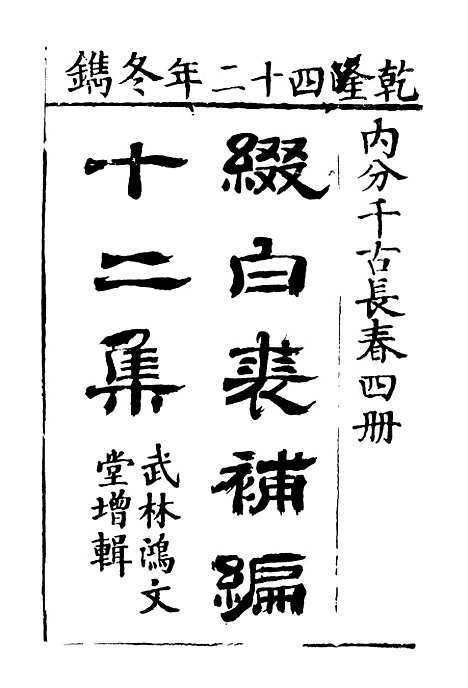 乾隆四十二年冬鐫
内分千古長春四册
綴白裘補編
十二集
武林鴻文
堂增輯